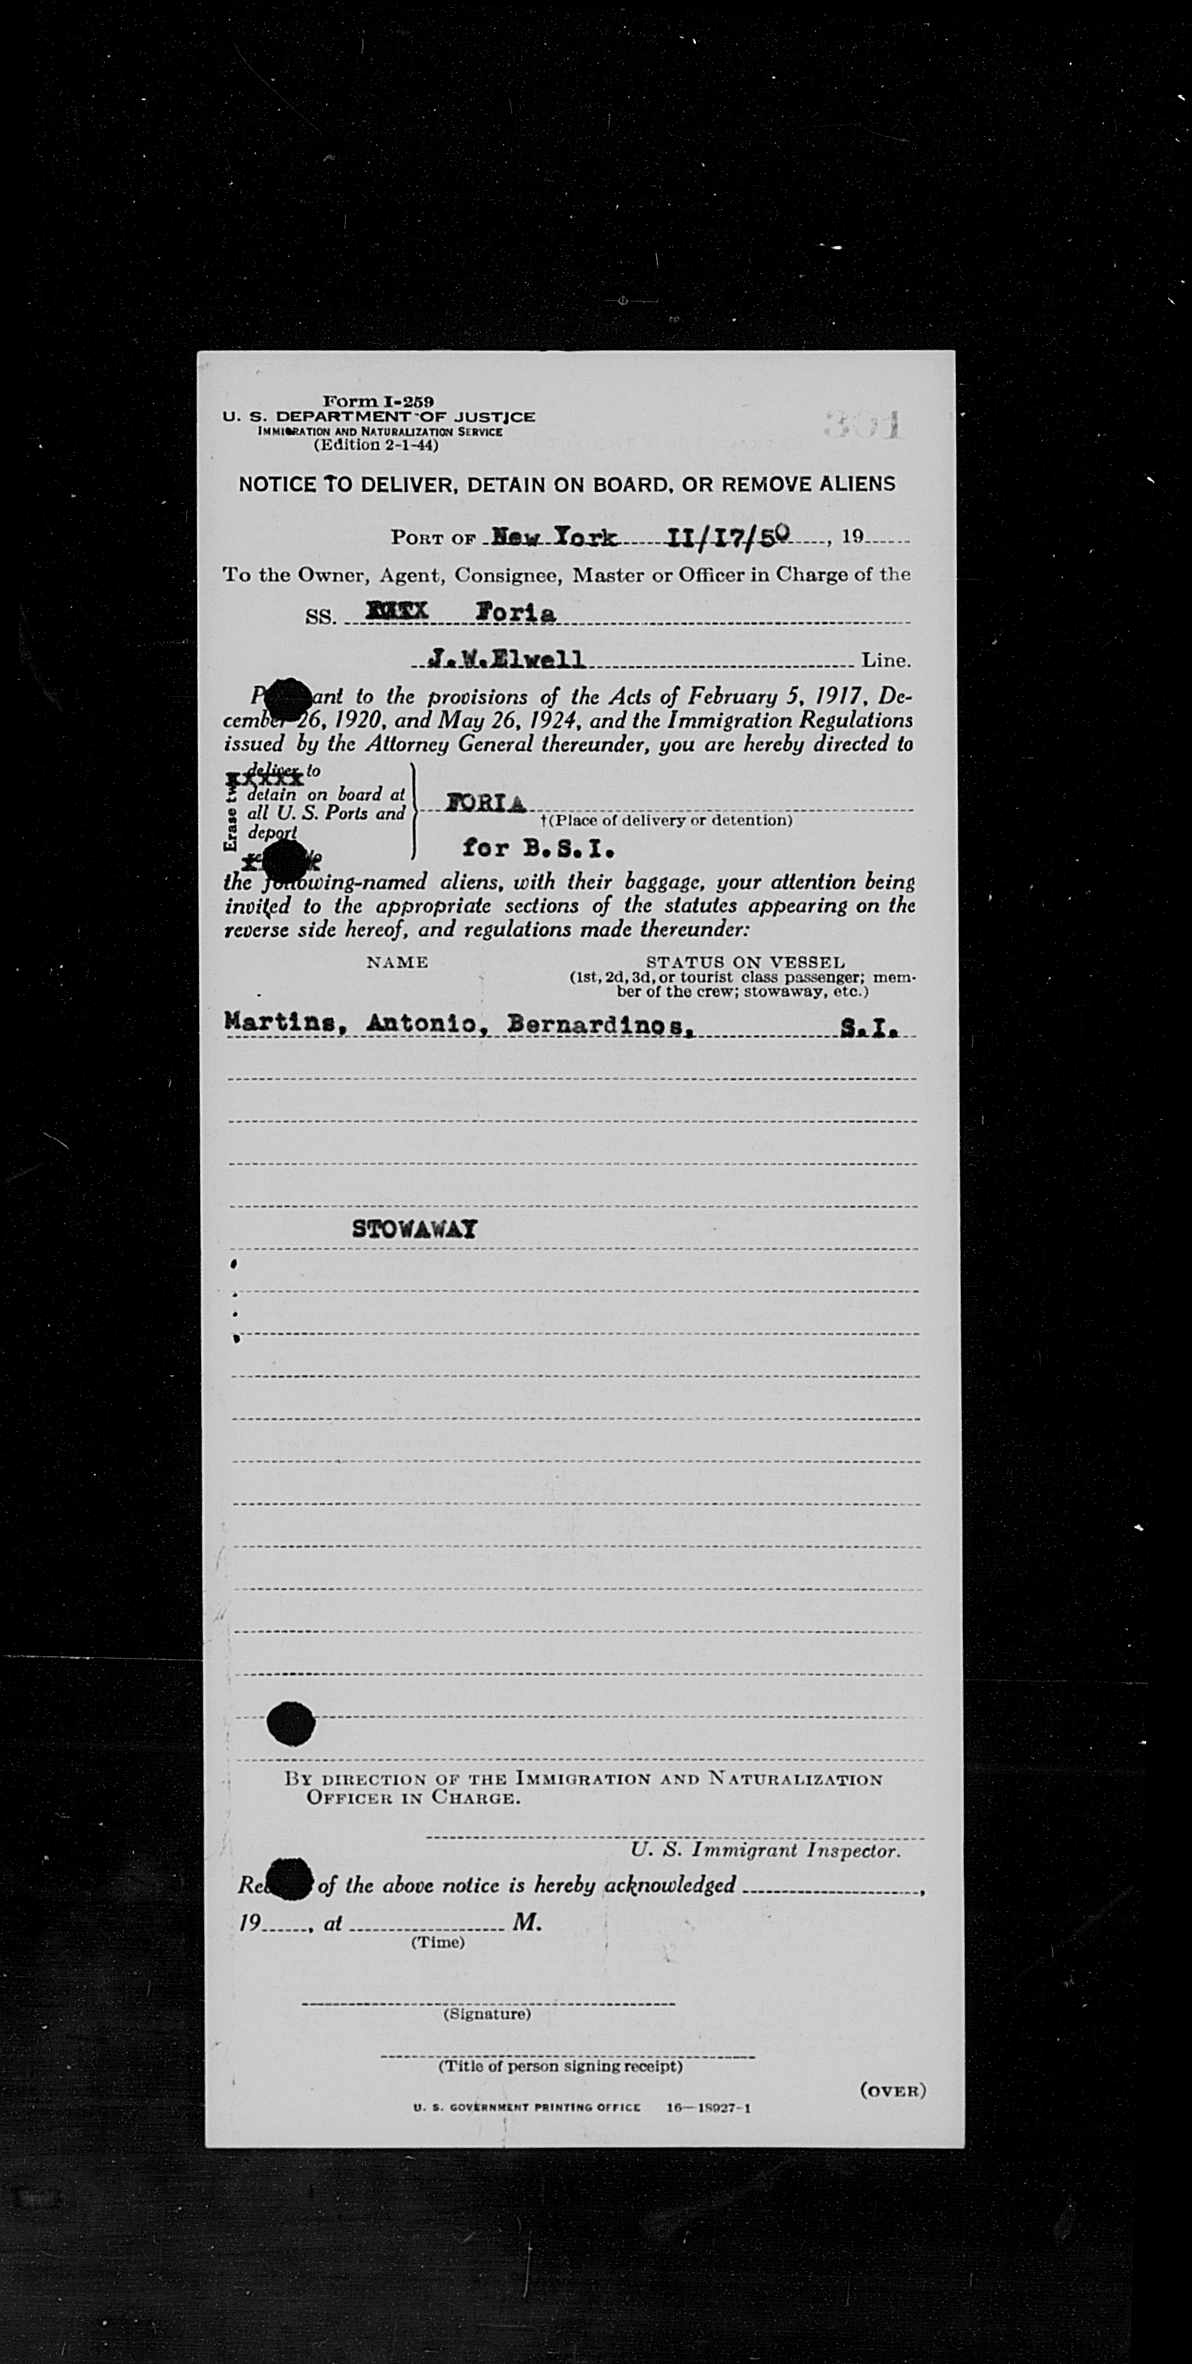 Form I-259
U. S. DEPARTMENT OF JUSTICE
IMMIGRATION AND NATURALIZATION SERVICE
(Edition 2-1-44)
NOTICE TO DELIVER, DETAIN ON BOARD, OR REMOVE ALIENS
PORT OF New York 11/17/50, 19
To the Owner, Agent, Consignee, Master or Officer in Charge of the
SS. Foria
J.W.Elwell Line.
ant to the provisions of the Acts of February 5, 1917, De-
cember 26, 1920, and May 26, 1924, and the Immigration Regulations
issued by the Attorney General thereunder, you are hereby directed to
deliver to
detain on board at
all U. S. Ports and
deport
Erase
FORIA
†(Place of delivery or detention)
for B.S.I.
the following-named aliens, with their baggage, your attention being
invited to the appropriate sections of the statutes appearing on the
reverse side hereof, and regulations made thereunder:
NAME STATUS ON VESSEL
(1st, 2d, 3d, or tourist class passenger; mem-
ber of the crew; stowaway, etc.)
Martins, Antonio, Bernardinos, S.I.
STOWAWAY
BY DIRECTION OF THE IMMIGRATION AND NATURALIZATION
OFFICER IN CHARGE.
U. S. Immigrant Inspector.
of the above notice is hereby acknowledged ,
19 , at M.
(Time)
(Signature)
(Title of person signing receipt)
(OVER)
U. S. GOVERNMENT PRINTING OFFICE 16—18927-1